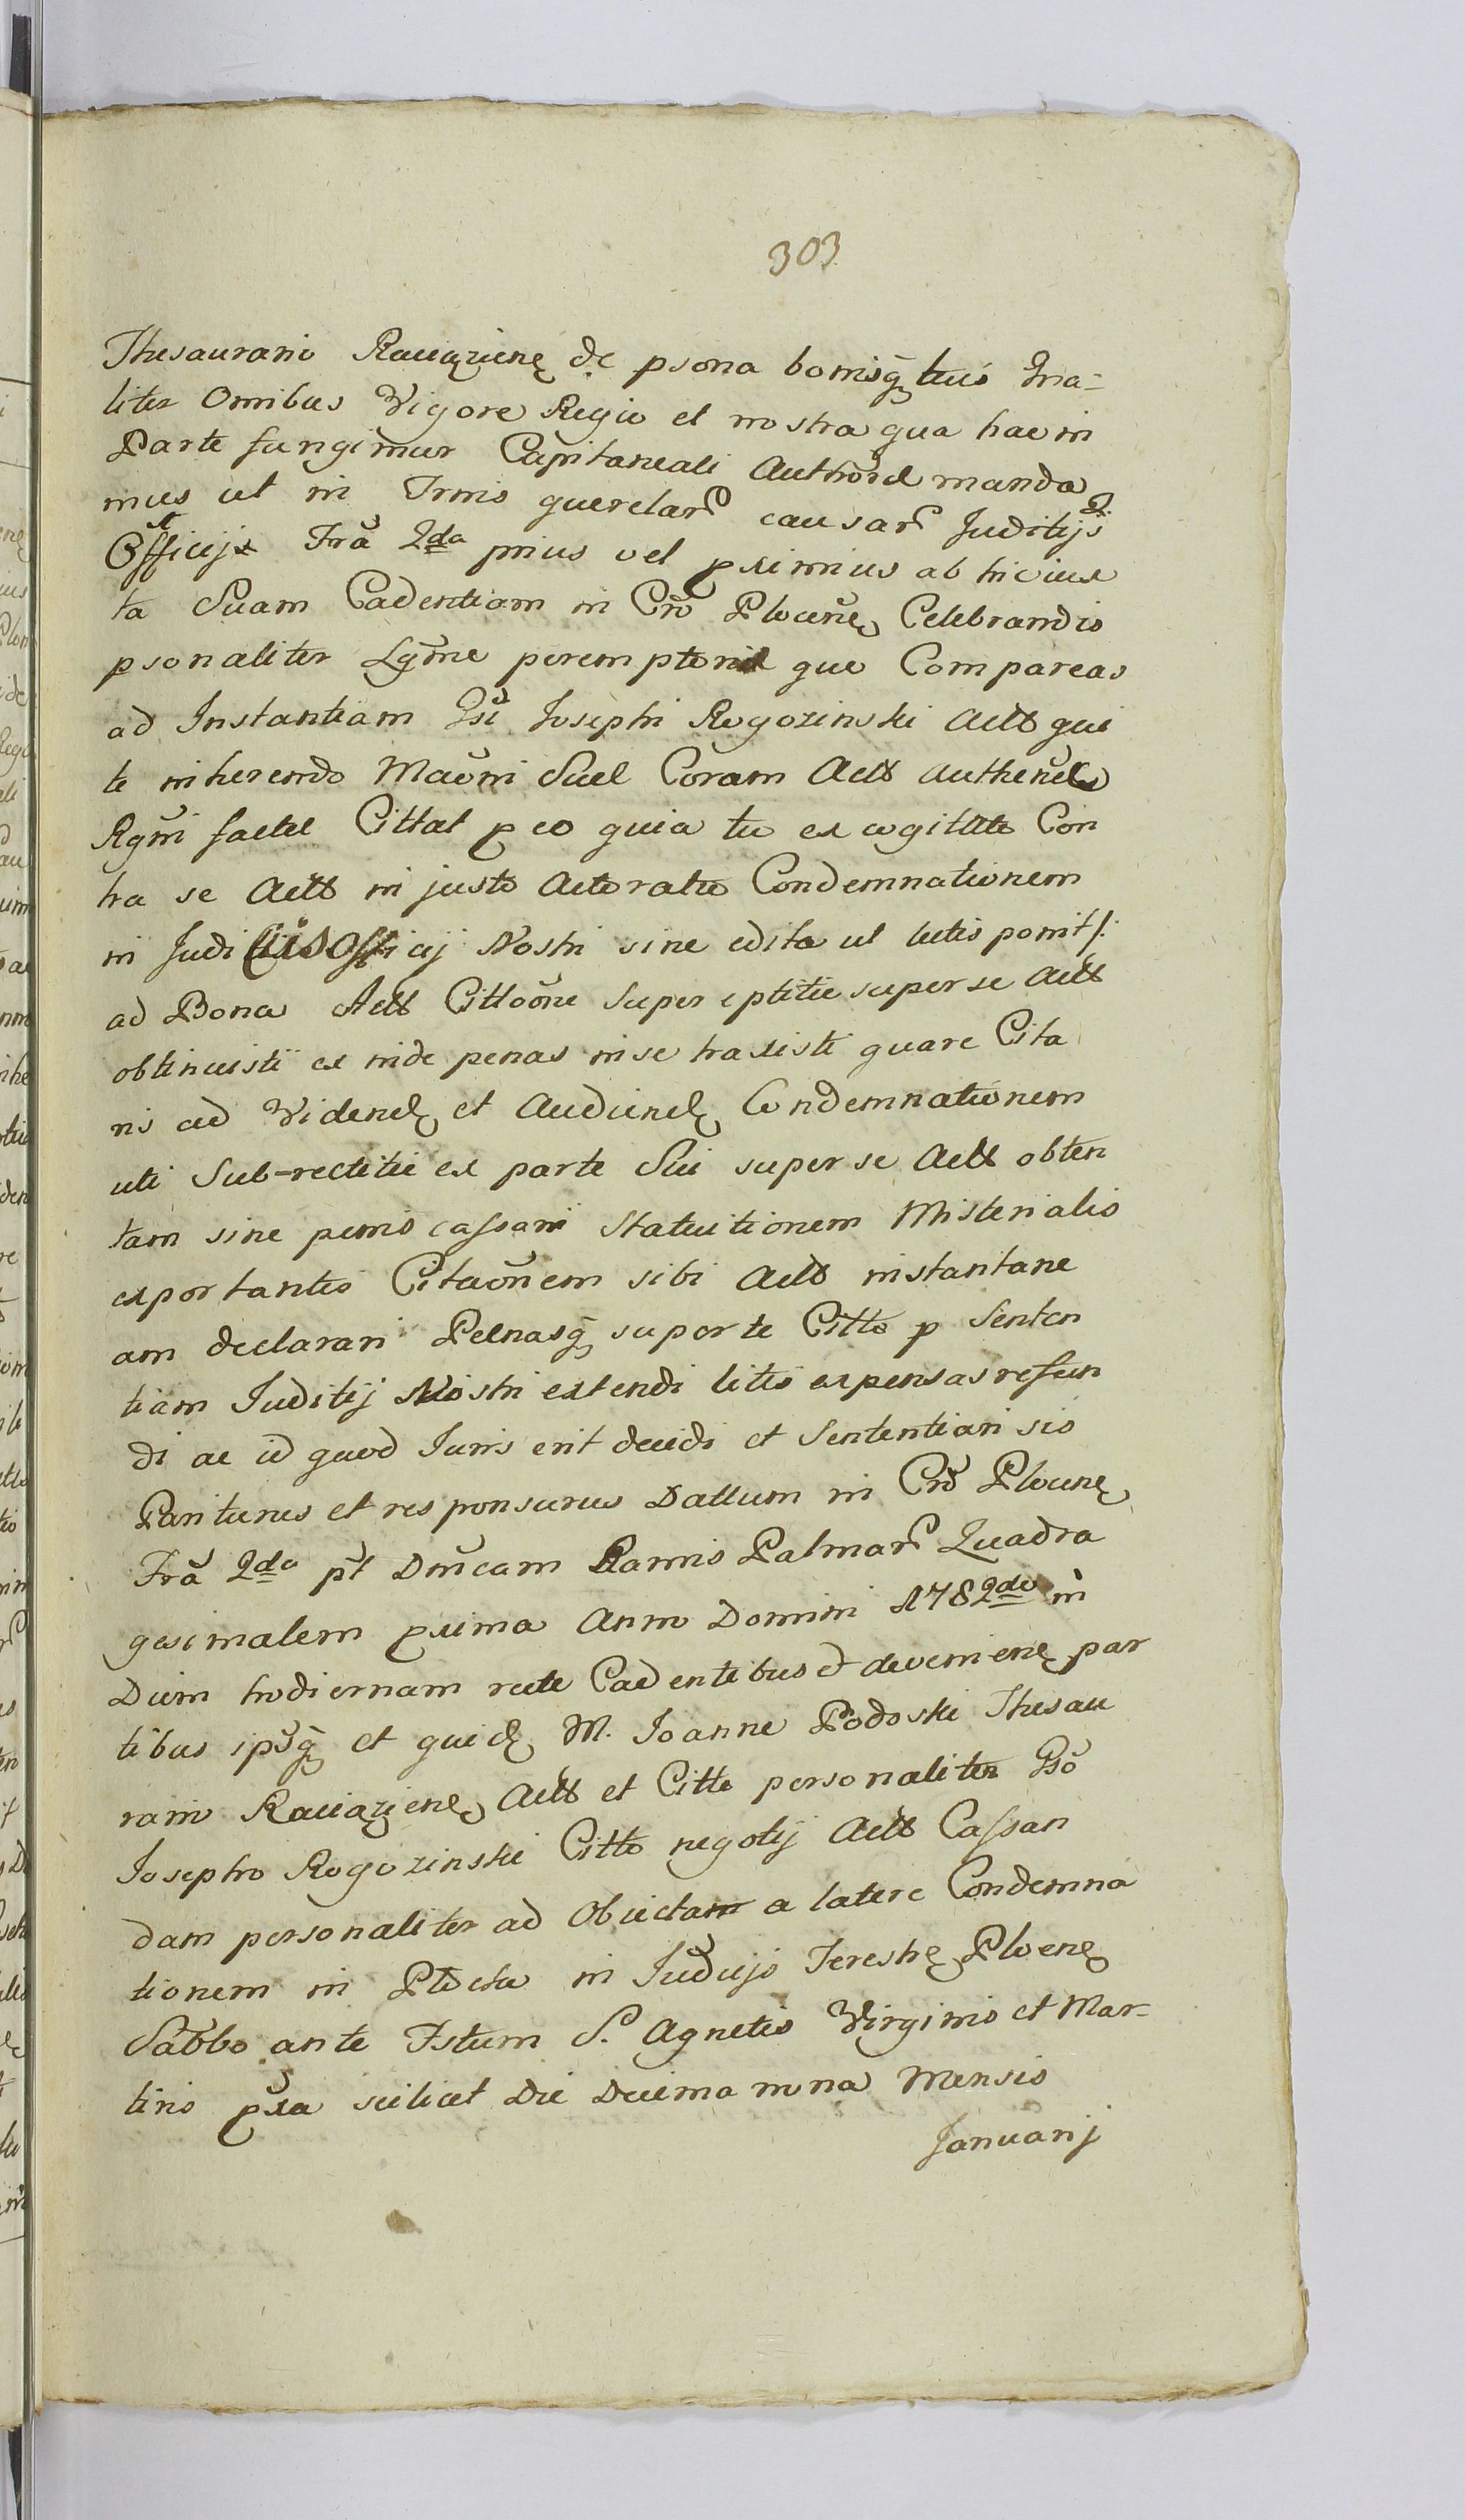 303
Thesaurario Raciązienę de psona bonisq̃ tuis Gna-
liter Omnibus Vigore Regia et nostra qua hac in
Parte fungimur Capitaneali Authord manda
mus ut in Trmis querelar causar Juditijs
Officijs Fra 2da prius vel pximius ab hic iux
ta Suam Cadentiam in Cro Plocenę Celebrandis
psonaliter Lgme peremptorieque Compareas
ad Instantiam Gsi Josephi Rogozinski Actt qui
te inherendo Maoni Suel Coram Actt authened
Rgni factel Cittat p eo quia tu ex cogitate Con
tra se Actt in juste Actoratu Condemnationem
in Judi Ciis Officij Nostri sine edita ut lutis ponit /.
ad Bona Actt Cittaone Super eptitie super se Actt
obtinuisti et inde penas in se traxisti quare Cita
ris ad Videnđ et Audienđ Condemnationem
uti Sub-rectitie ex parte Sui super se Actt obten
tam sine penis cassari Statuitionem Misterialis
exportantis Citaonem sibi Actt instantane
am declarari Penasq̃ super te Citto p Senten
tiam Juditij Nostri extendi litis expensas refun
di ac id quod Juris erit decidi et Sententiari sis
Pariturus et responsurus Dattum in Cro Plocenę
Fra 2da pt Dmcam Ramis Palmar Quadra
gesimalem pxima Anno Domini 1782do in
Diem hodiernam recte Cadentibus et devenienę par
tibus ipsq̃ et quidę M. Joanne Podoski Thesau
rario Raciązienę Actt et Citto personaliter Gso
Josepho Rogozinski Citto negotij Actt Cassan
dam personaliter ad Obiectam a latere Condemna
tionem in Plocka in Judicijs Terestrę Plocenę
Sabbo ante Fstum S. Agnetis Virginis et Mar-
tiris pxa scilicet Die Decima nona Mensis
Januarij